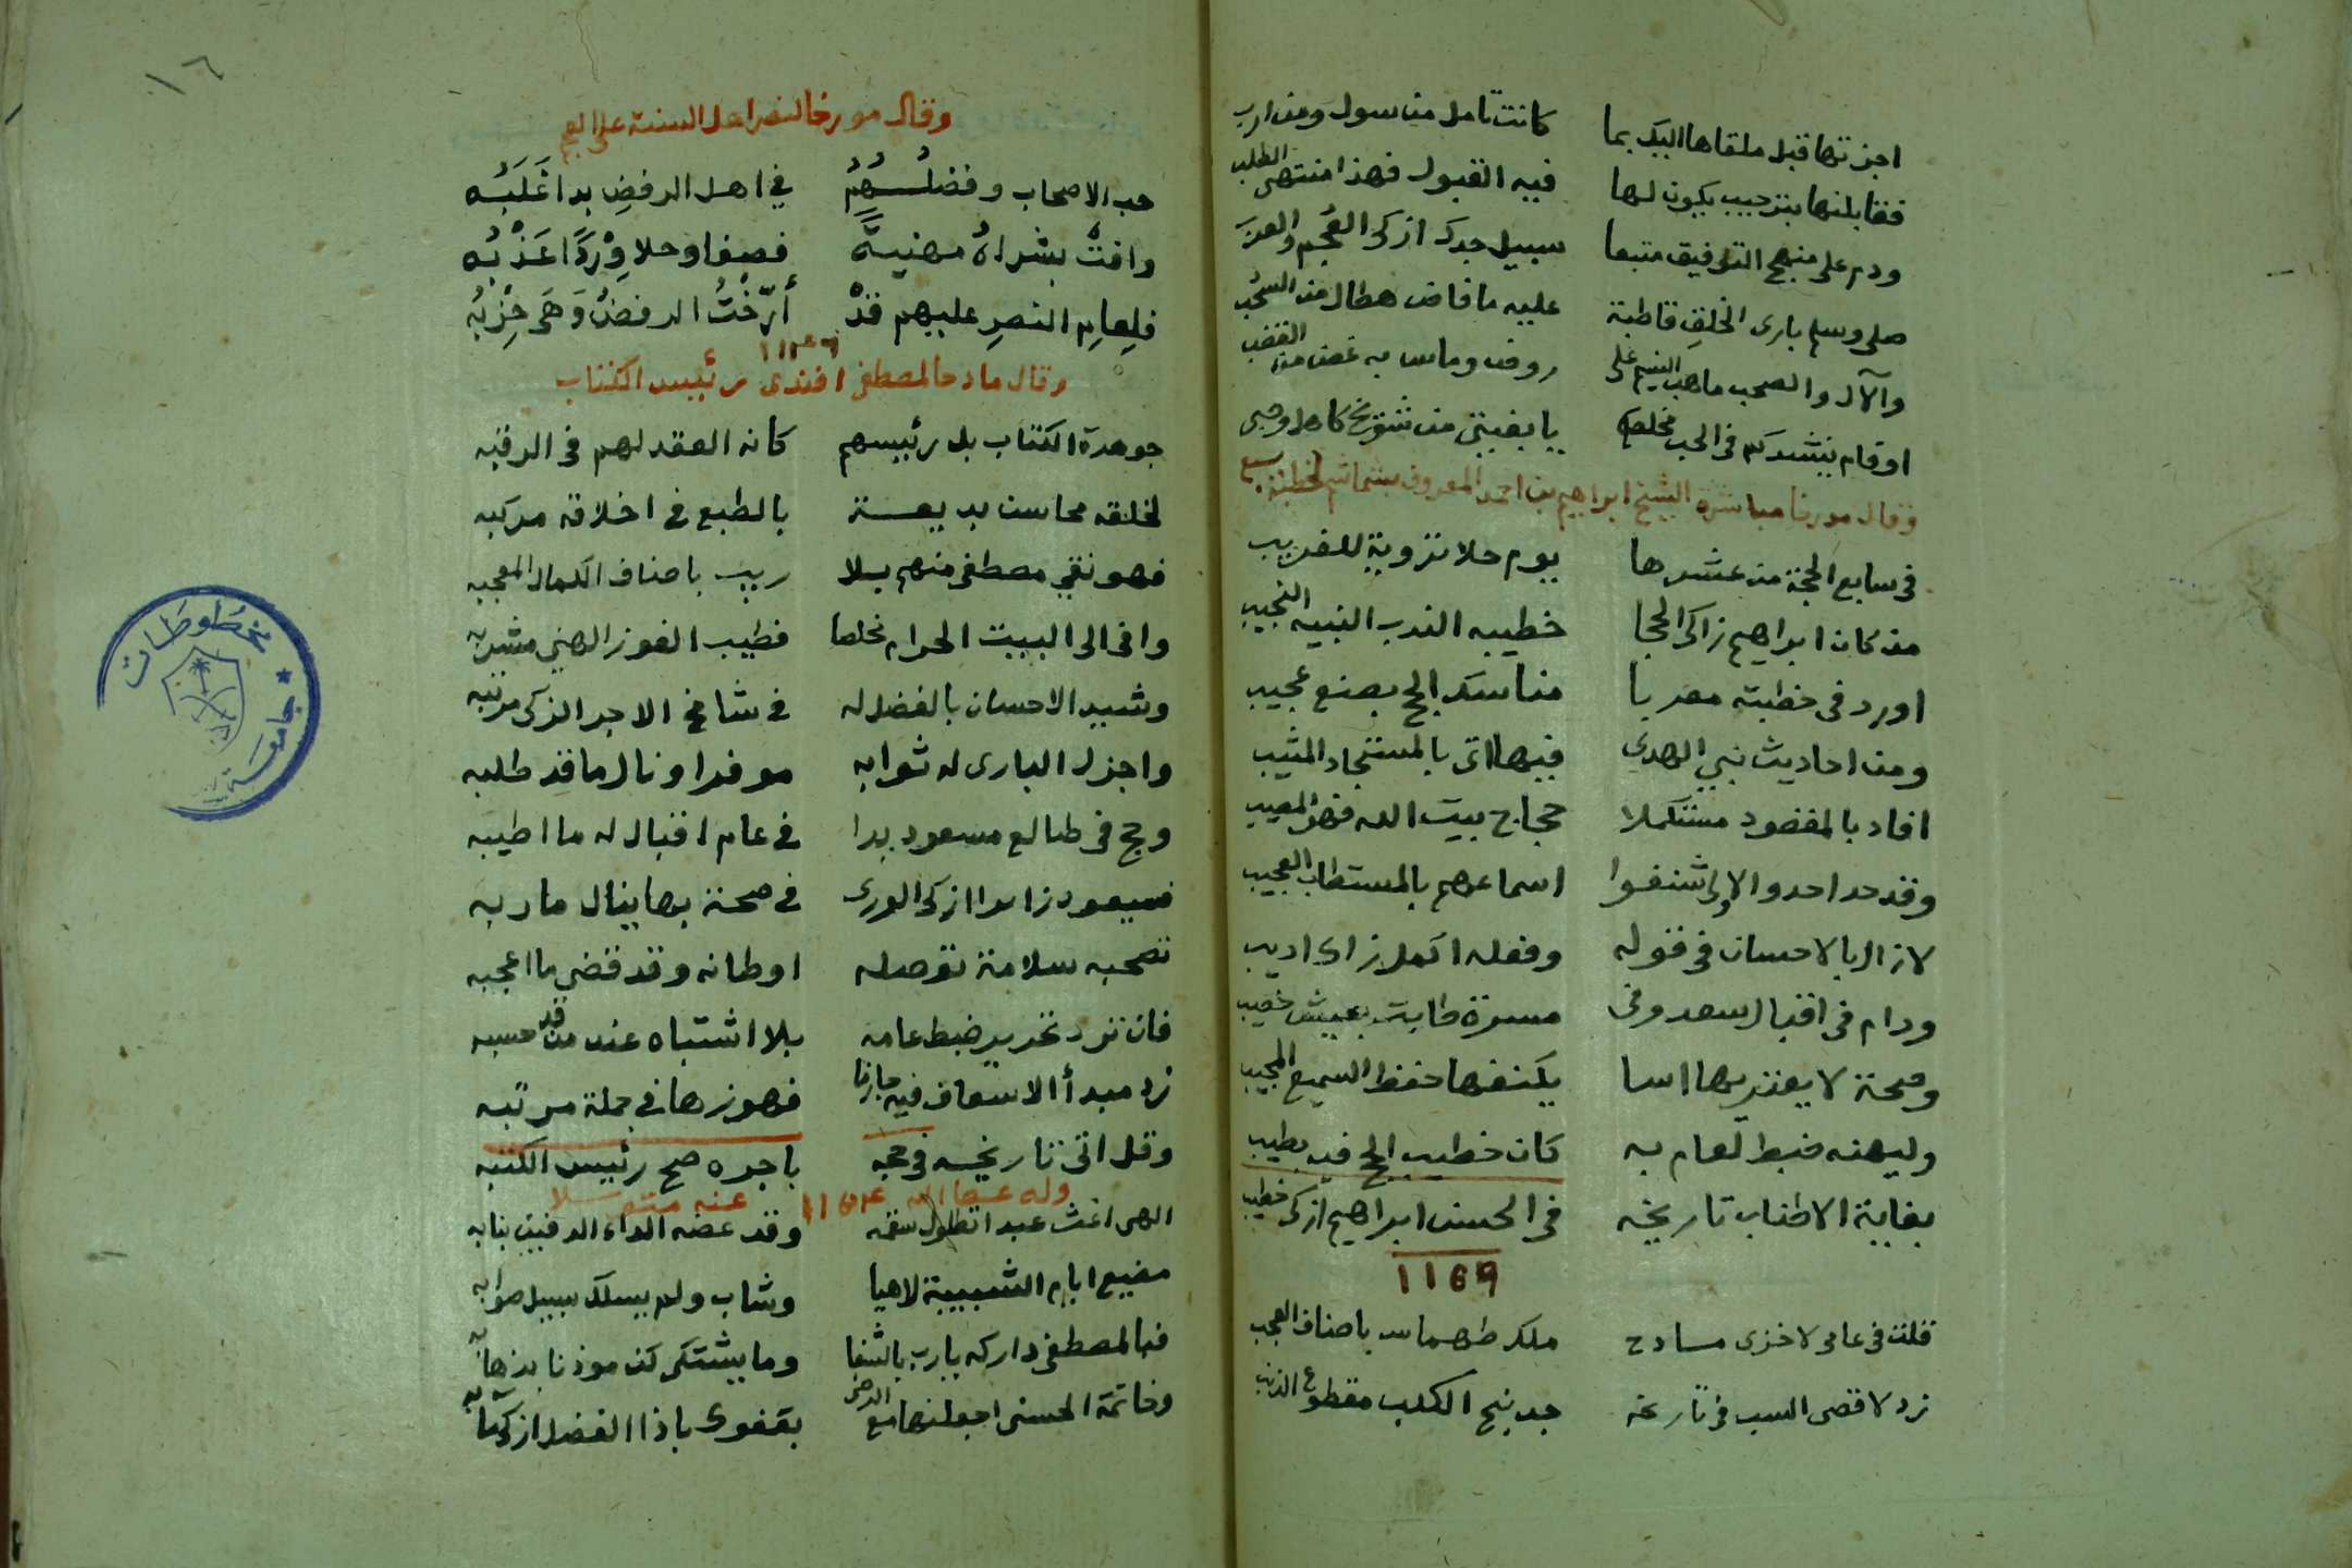 اجزتها قبل ملقاها اليك بما كانت تامل من سول ومن ارب
فقابلنها بترحيب يكون لها فيه القبول فهذا منتهى الطلب
ودم على منهج التوفيق متبعا سبيل جدك ازكى العجم والعرب
صلى وسلم بارى الخلق قاطبة عليه ما فاض هطال من السحب
والآل والصحب ما هب النسيم على روض وماس به غصن من القضب
او قام ينشدكم فى الحب مخلصكم يا بغيتى من
وقال مورخا مباشرة الشيخ ابراهيم بن احمد المعروف
فى سابع الحجة من عشرها يوم حلا تروية للغريب
من كان ابراهيم زاكى الحجا خطيبه الندب النبيه النجيب
اورد فى خطبته معربا مناسك الحج بصنع عجيب
ومن احاديث نبي الهدى فيها اتى بالمستجاد المثيب
افاد بالمقصود مستكملا حجاج بيت الله فهو المصيب
وقد حدا حدو الاولى شنفوا اسماعهم بالمستطاب العجيب
لازال بالاحسان فى قوله وفعله اكمل زاك اديب
ودام فى اقبال سعد وفى مسرة طابت بعيش خصيب
وصحة لا يعتريها اسا يكنفها حفظ السميع المجيب
وليهنه ضبط لعام به كان خطيب الحج فيه يطيب
بغاية الاطناب تاريخه فى الحسن ابراهيم ازكى خطيب
١١٥٩
قلت فى عامى لاخزى مادح ملك طهماس باصناف العجب
زد لاقصى السب فى تاريخه جد نبح الكلب مقطوع الذنب
١٦
وقال مورخا لنصر اهل السنة على العجم
حب الاصحاب وفضلُهُمُ في اهل الرفضِ بدا غَلَبُه
وافتْ بشراهُ مهنيةً فصفا وحلا وِرْدًا عَذْبُه
فلِعامِ النصرِ عليهم قدْ أرّختُ الرفضُ وَهَى حِزْبُه
وقال مادحا لمصطفى افندى رئيس الكتاب
جوهرة الكتاب بل رئيسهم كانه العقد لهم فى الرقبه
لخلقه محاسن بديعة بالطبع فى اخلاقه مركبه
فهو نقي مصطفى منهم بلا ريب باصناف الكمال المعجبه
وافى الى البيت الحرام مخلصا فطيب الفوز الهني مشربه
وشيد الاحسان بالفضل له في شامخ الاجر الزكى مرتبه
واجزل البارى له ثوابه موفرا ونال ما قد طلبه
وحج فى طالع مسعود بدا في عام اقبال له ما اطيبه
فسيعود زائرا ازكى الورى في صحة بها ينال ماربه
تصحبه سلامة توصله اوطانه وقد قضى ما اعجبه
فان ترد تحرير ضبط عامه بلا اشتباه عند من قد حسبه
زد مبدأ الاسعاف فيه جازما فهو زها في جملة مرتبه
وقل اتى تاريخه فى حجه باجره صح رئيس الكتبه
وله عفا الله عنه متوسلا
الهى اغث عبدا تطول سقمه وقد عضه الداء الدفين بنابه
مضيع ايام الشبيبة لاهيا وشاب ولم يسلك سبيل صوابه
فبالمصطفى داركه يارب بالشفا وما يشتكى كن موذنا بذهابه
وخاتمة الحسنى اجعلنها مع الرضى بقفوى ياذا الفضل ازكى
مخطوطات
جامعة